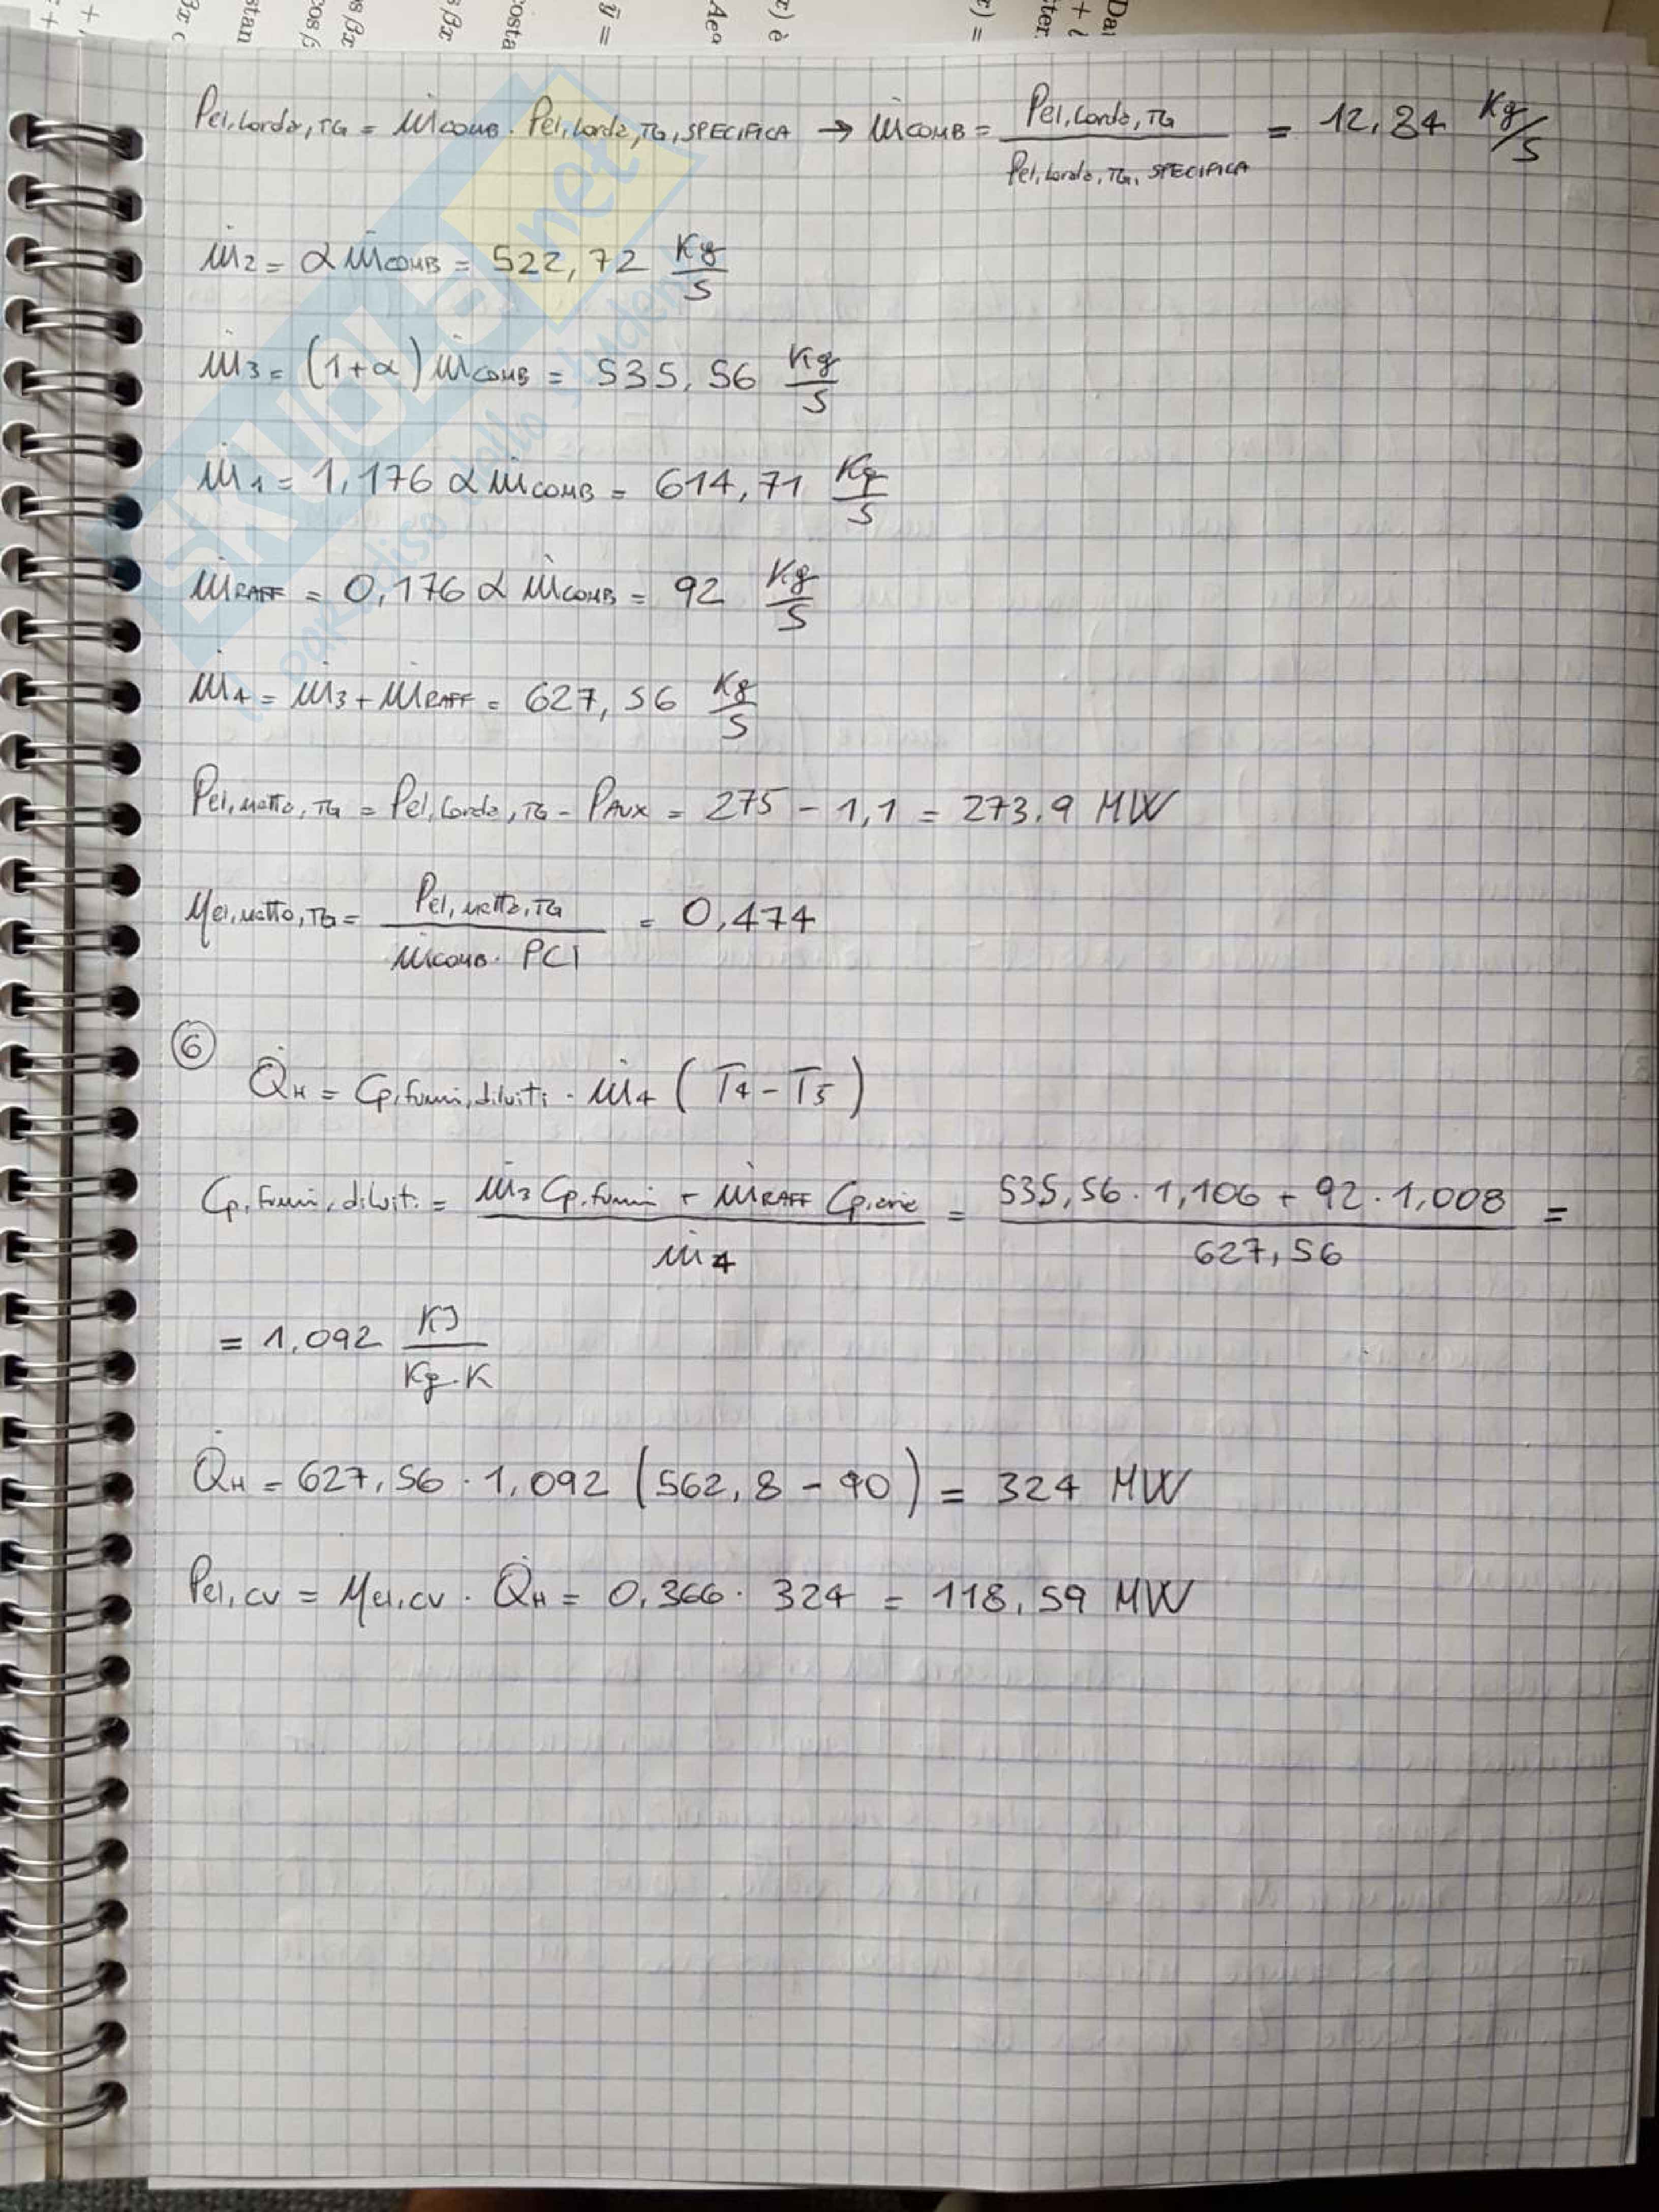 Pel,lorda,TG = ṁCOMB · Pel,lorda,TG,SPECIFICA → ṁCOMB = Pel,lorda,TG / Pel,lorda,TG,SPECIFICA = 12,84 Kg/s
ṁ2 = α ṁCOMB = 522,72 Kg/s
ṁ3 = (1+α) ṁCOMB = 535,56 Kg/s
ṁ1 = 1,176 α ṁCOMB = 614,71 Kg/s
ṁRAFF = 0,176 α ṁCOMB = 92 Kg/s
ṁ4 = ṁ3 + ṁRAFF = 627,56 Kg/s
Pel,netto,TG = Pel,lorda,TG - PAUX = 275 - 1,1 = 273,9 MW
ηel,netto,TG = Pel,netto,TG / ṁCOMB · PCI = 0,474
6
Q̇H = Cp,fumi,diluiti · ṁ4 (T4 - T5)
Cp,fumi,diluiti = ṁ3 Cp,fumi + ṁRAFF Cp,aria / ṁ4 = 535,56 · 1,106 + 92 · 1,008 / 627,56 =
= 1,092 KJ / Kg·K
Q̇H = 627,56 · 1,092 (562,8 - 90) = 324 MW
Pel,CV = ηel,CV · Q̇H = 0,366 · 324 = 118,59 MW
SKUOLA.net
il paradiso dello studente